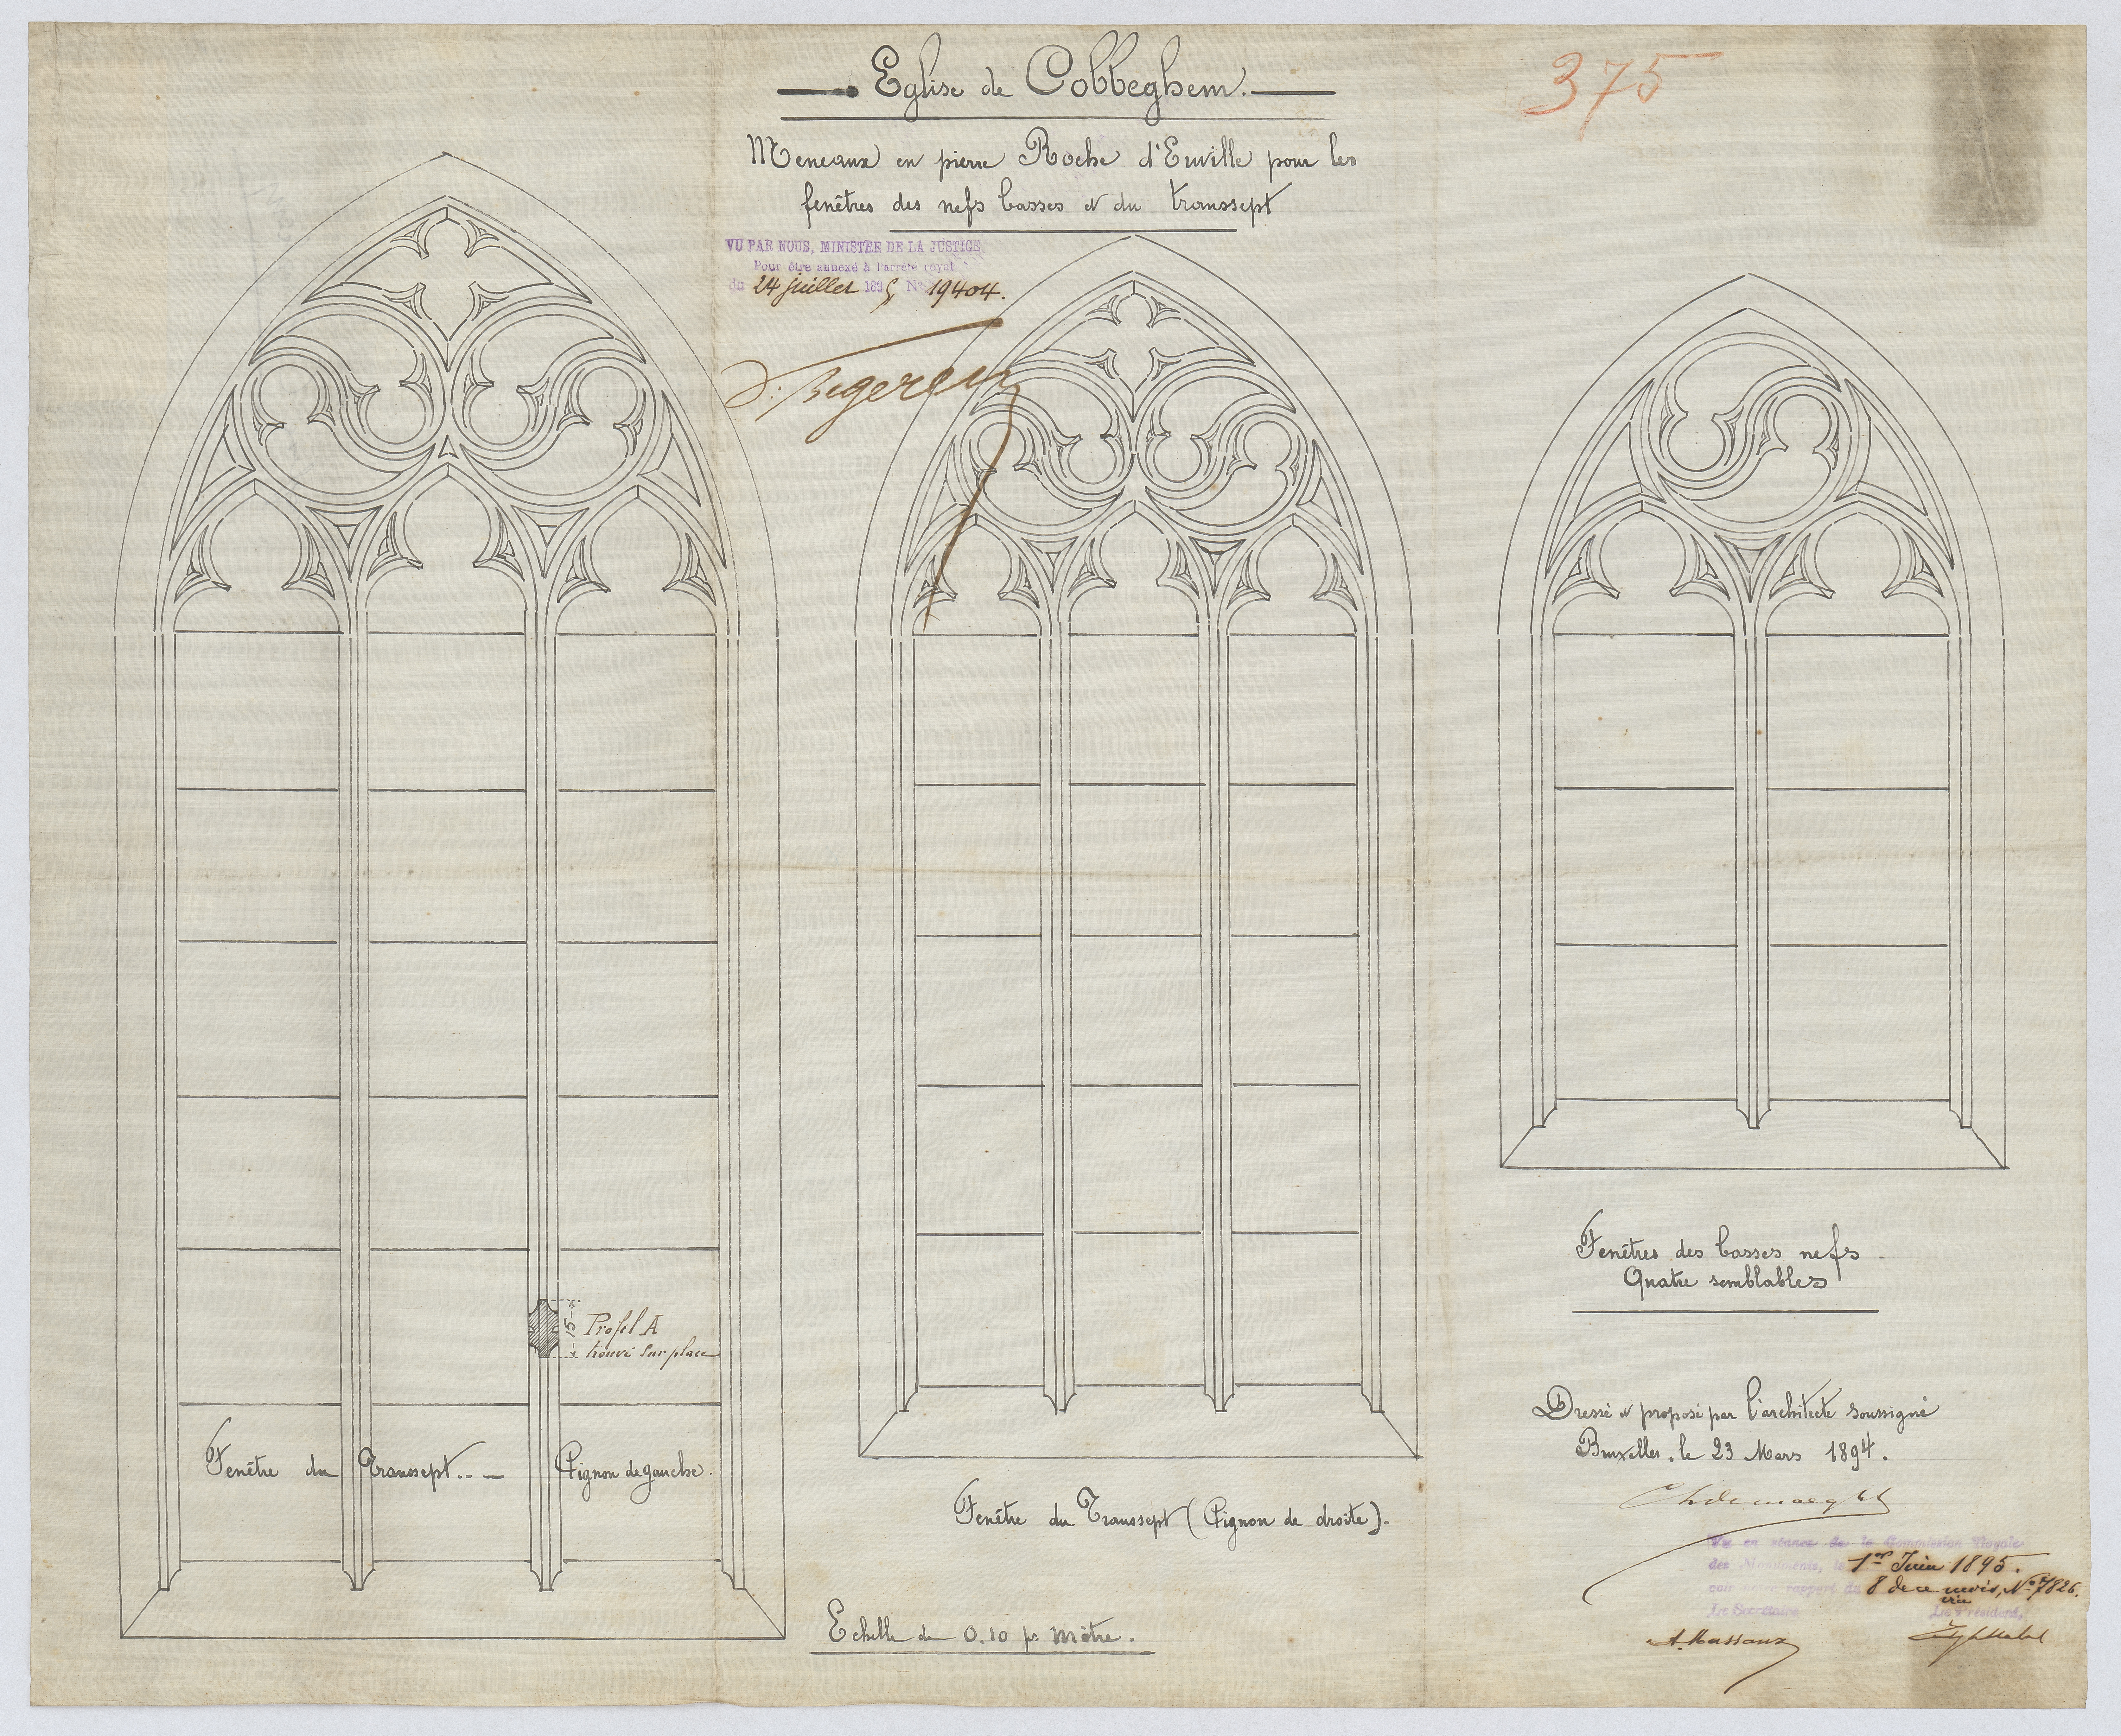 Eglise de Cobbeghem.
375
Meneaux en pierre Roche d'Euville pour les
fenêtres des nefs basses et du transsept
VU PAR NOUS, MINISTRE DE LA JUSTICE
Pour être annexé à l'arrêté royal
du 24 juillet 1895 N° 19404.
Profil A
trouvé sur place
15
Fenêtre du Transsept.. — Pignon de gauche.
Fenêtre du Transsept (Pignon de droite).
Echelle de 0.10 pr. Mètre.
Fenêtres des basses nefs
Quatre semblables
Dressé et proposé par l'architecte soussigné
Bruxelles, le 23 Mars 1894.
Vu en séance de la Commission Royale
des Monuments, le 1er Juin 1895.
voir notre rapport du 8 de ce mois, N° 7826.
Le Secrétaire
Le Président,
A. Massaux